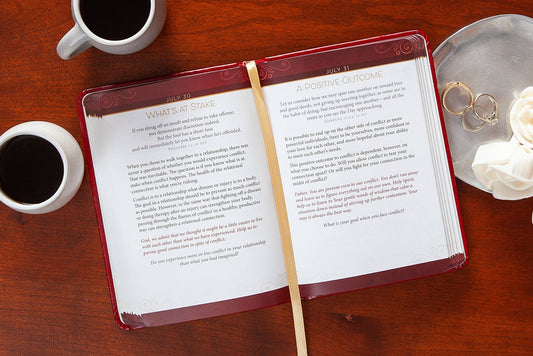 JULY 30
WHAT'S AT STAKE
If you shrug off an insult and refuse to take offense,
you demonstrate discretion indeed.
But the fool has a short fuse
and will immediately let you know when he's offended.
PROVERBS 12:16 TPT
When you chose to walk together in a relationship, there was
never a question of whether you would experience conflict.
That was inevitable. The question is if you knew what is at
stake when conflict happens. The health of the relational
connection is what you're risking.
Conflict is to a relationship what disease or injury is to a body.
In a relationship the goal should be to prevent as much conflict
as possible. However, in the same way that fighting off a disease
or doing therapy after an injury can strengthen your body,
passing through the flames of conflict in a healthy, productive
way can strengthen a relational connection.
God, we admit that we thought it might be a little easier to live
with each other than what we have experienced. Help us to
pursue good connection in spite of conflict.
Do you experience more or less conflict in your relationship
than what you had imagined?
JULY 31
A POSITIVE OUTCOME
Let us consider how we may spur one another on toward love
and good deeds, not giving up meeting together, as some are in
the habit of doing, but encouraging one another—and all the
more as you see the Day approaching.
HEBREWS 10:24-25 NIV
It is possible to end up on the other side of conflict as more
powerful individuals, freer to be yourselves, more confident in
your love for each other, and more hopeful about your ability
to meet each other's needs.
This positive outcome to conflict is dependent, however, on
what you choose to do. Will you allow conflict to tear your
connection apart? Or will you fight for your connection in the
midst of conflict?
Father, You are present even in our conflict. You don't run away
and leave us to figure everything out on our own. Holy Spirit,
help us to listen to Your gentle words of wisdom that calm a
situation down instead of stirring up further contention. Your
way is always the best way.
What is your goal when you face conflict?